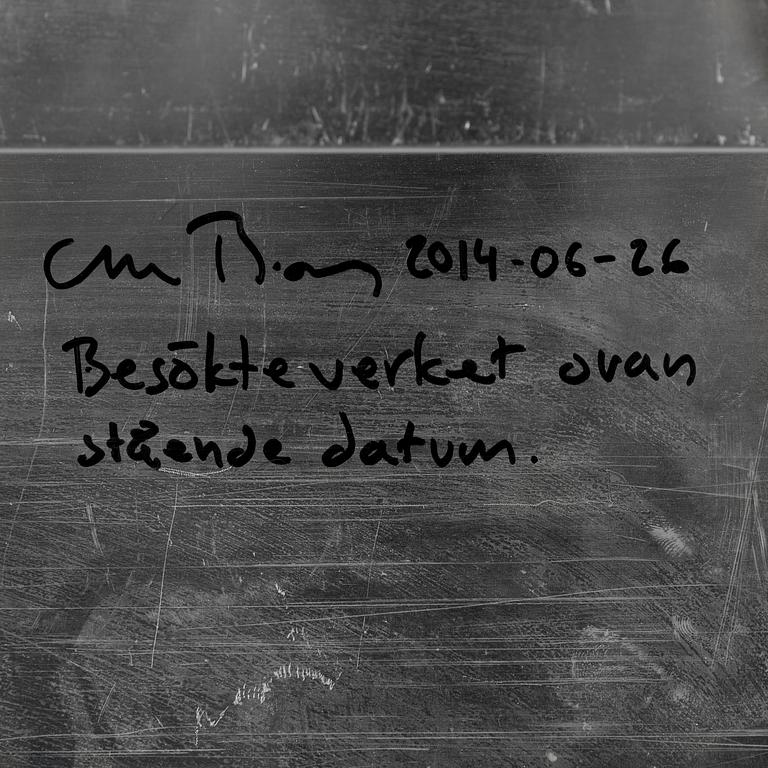 2014-06-26
Besökte verket ovan
stående datum.